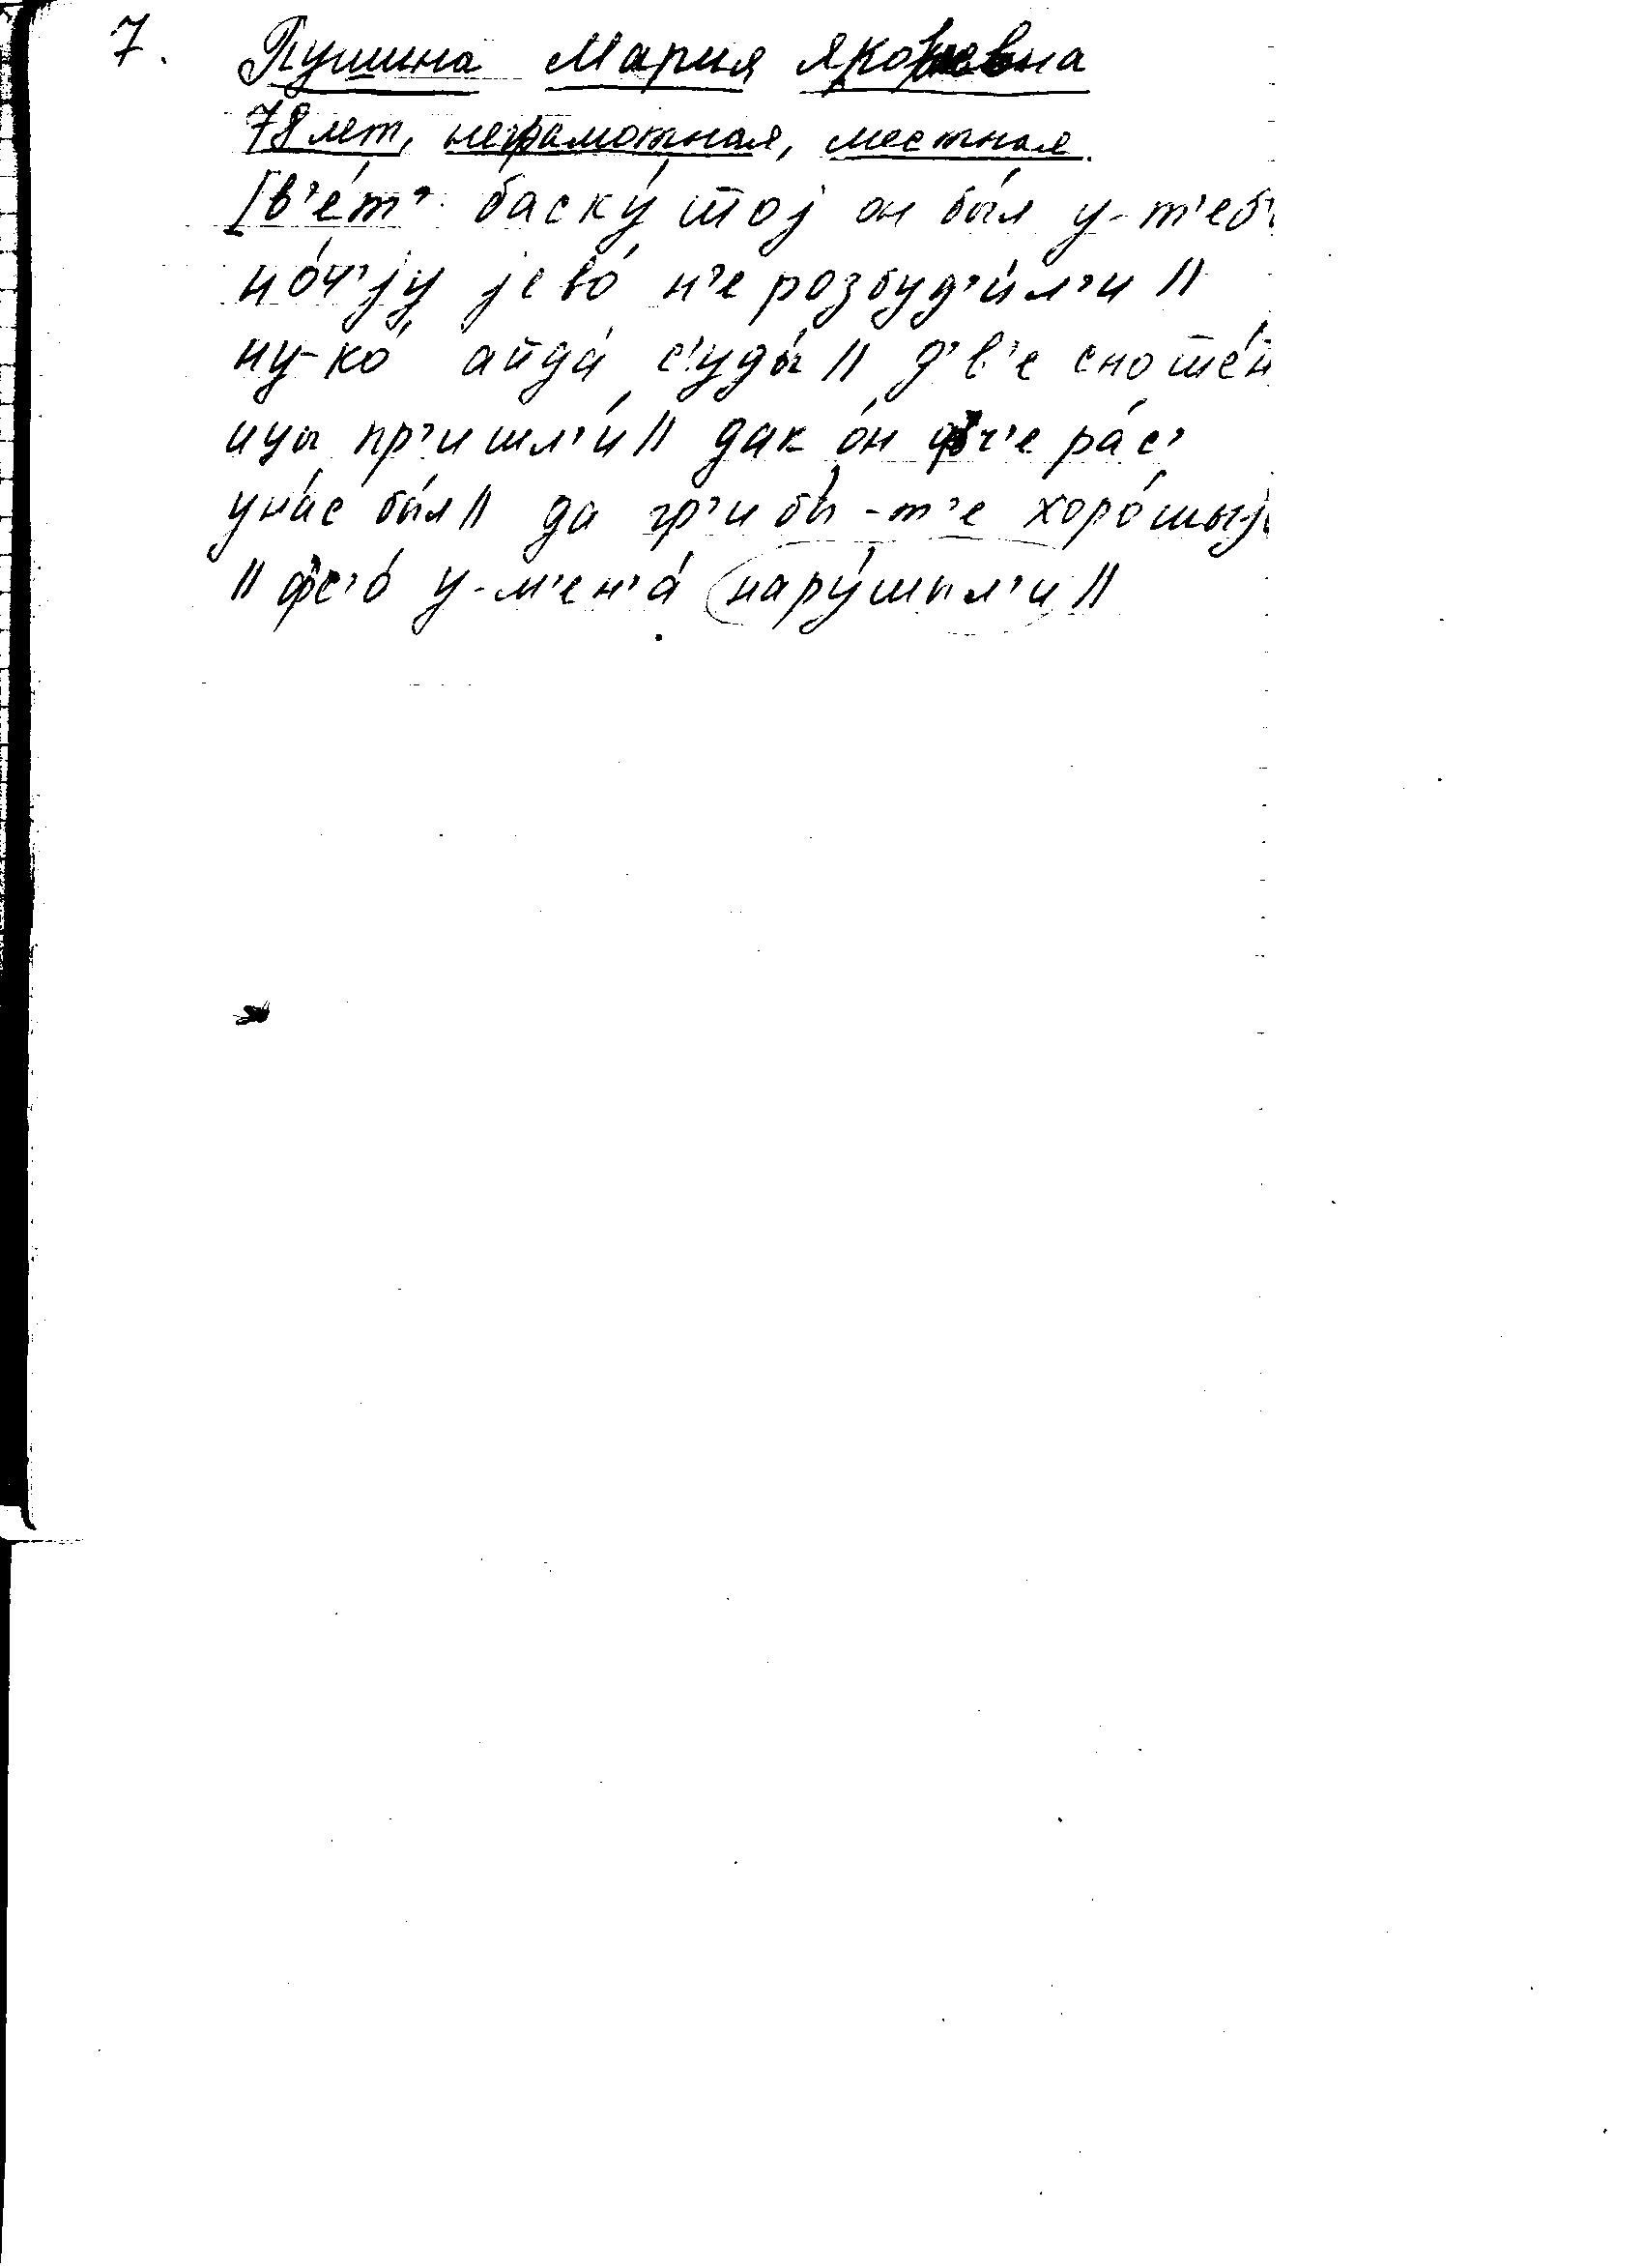 7. Пушина Мария Яковлевна
78 лет, неграмотная, местная.
[в'е́т' баску́штој он бы́л у-т'еб'
но́ч'ју јево́ н'е розбуд'и́л'и //
ну-ко́ айда́ с'уды́ // д'в'е сношен
ицы пр'ишл'и́ // дак о́н фч'ера́с'
уна́с бы́л // да гр'ибы́-т'е хоро́шыј
// фс'о́ у-м'ен'а́ нару́шыл'и //